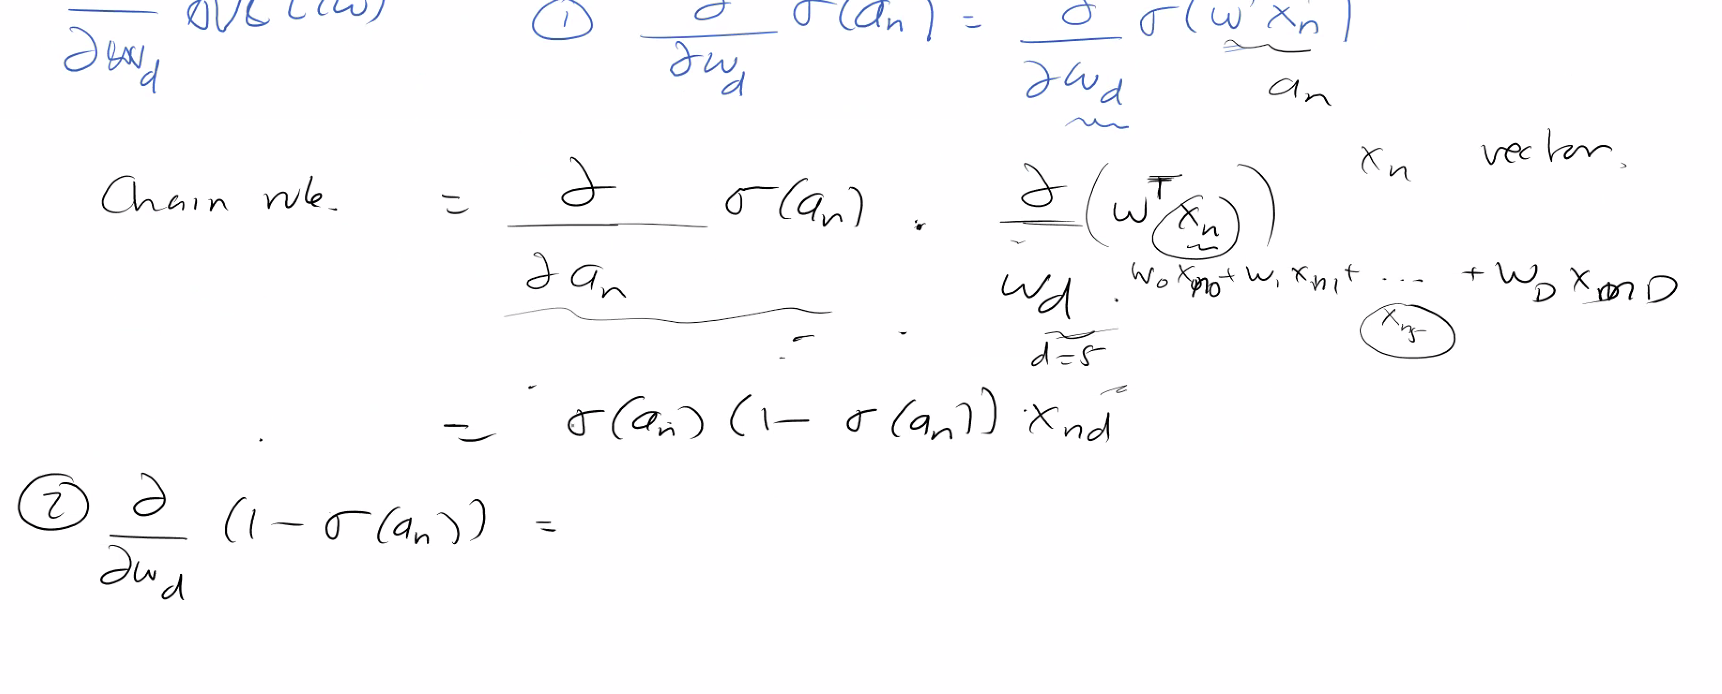 ∂/∂w_d ① ∂/∂w_d σ(a_n) = ∂/∂w_d σ(w^T x_n)
a_n
x_n vector.
Chain rule. = ∂/∂a_n σ(a_n) . ∂/w_d (w^T x_n)
w_0 x_n0 + w_1 x_n1 + .... + w_D x_nD
d=5 x_n5
= σ(a_n) (1 - σ(a_n)) x_nd
② ∂/∂w_d (1 - σ(a_n)) =